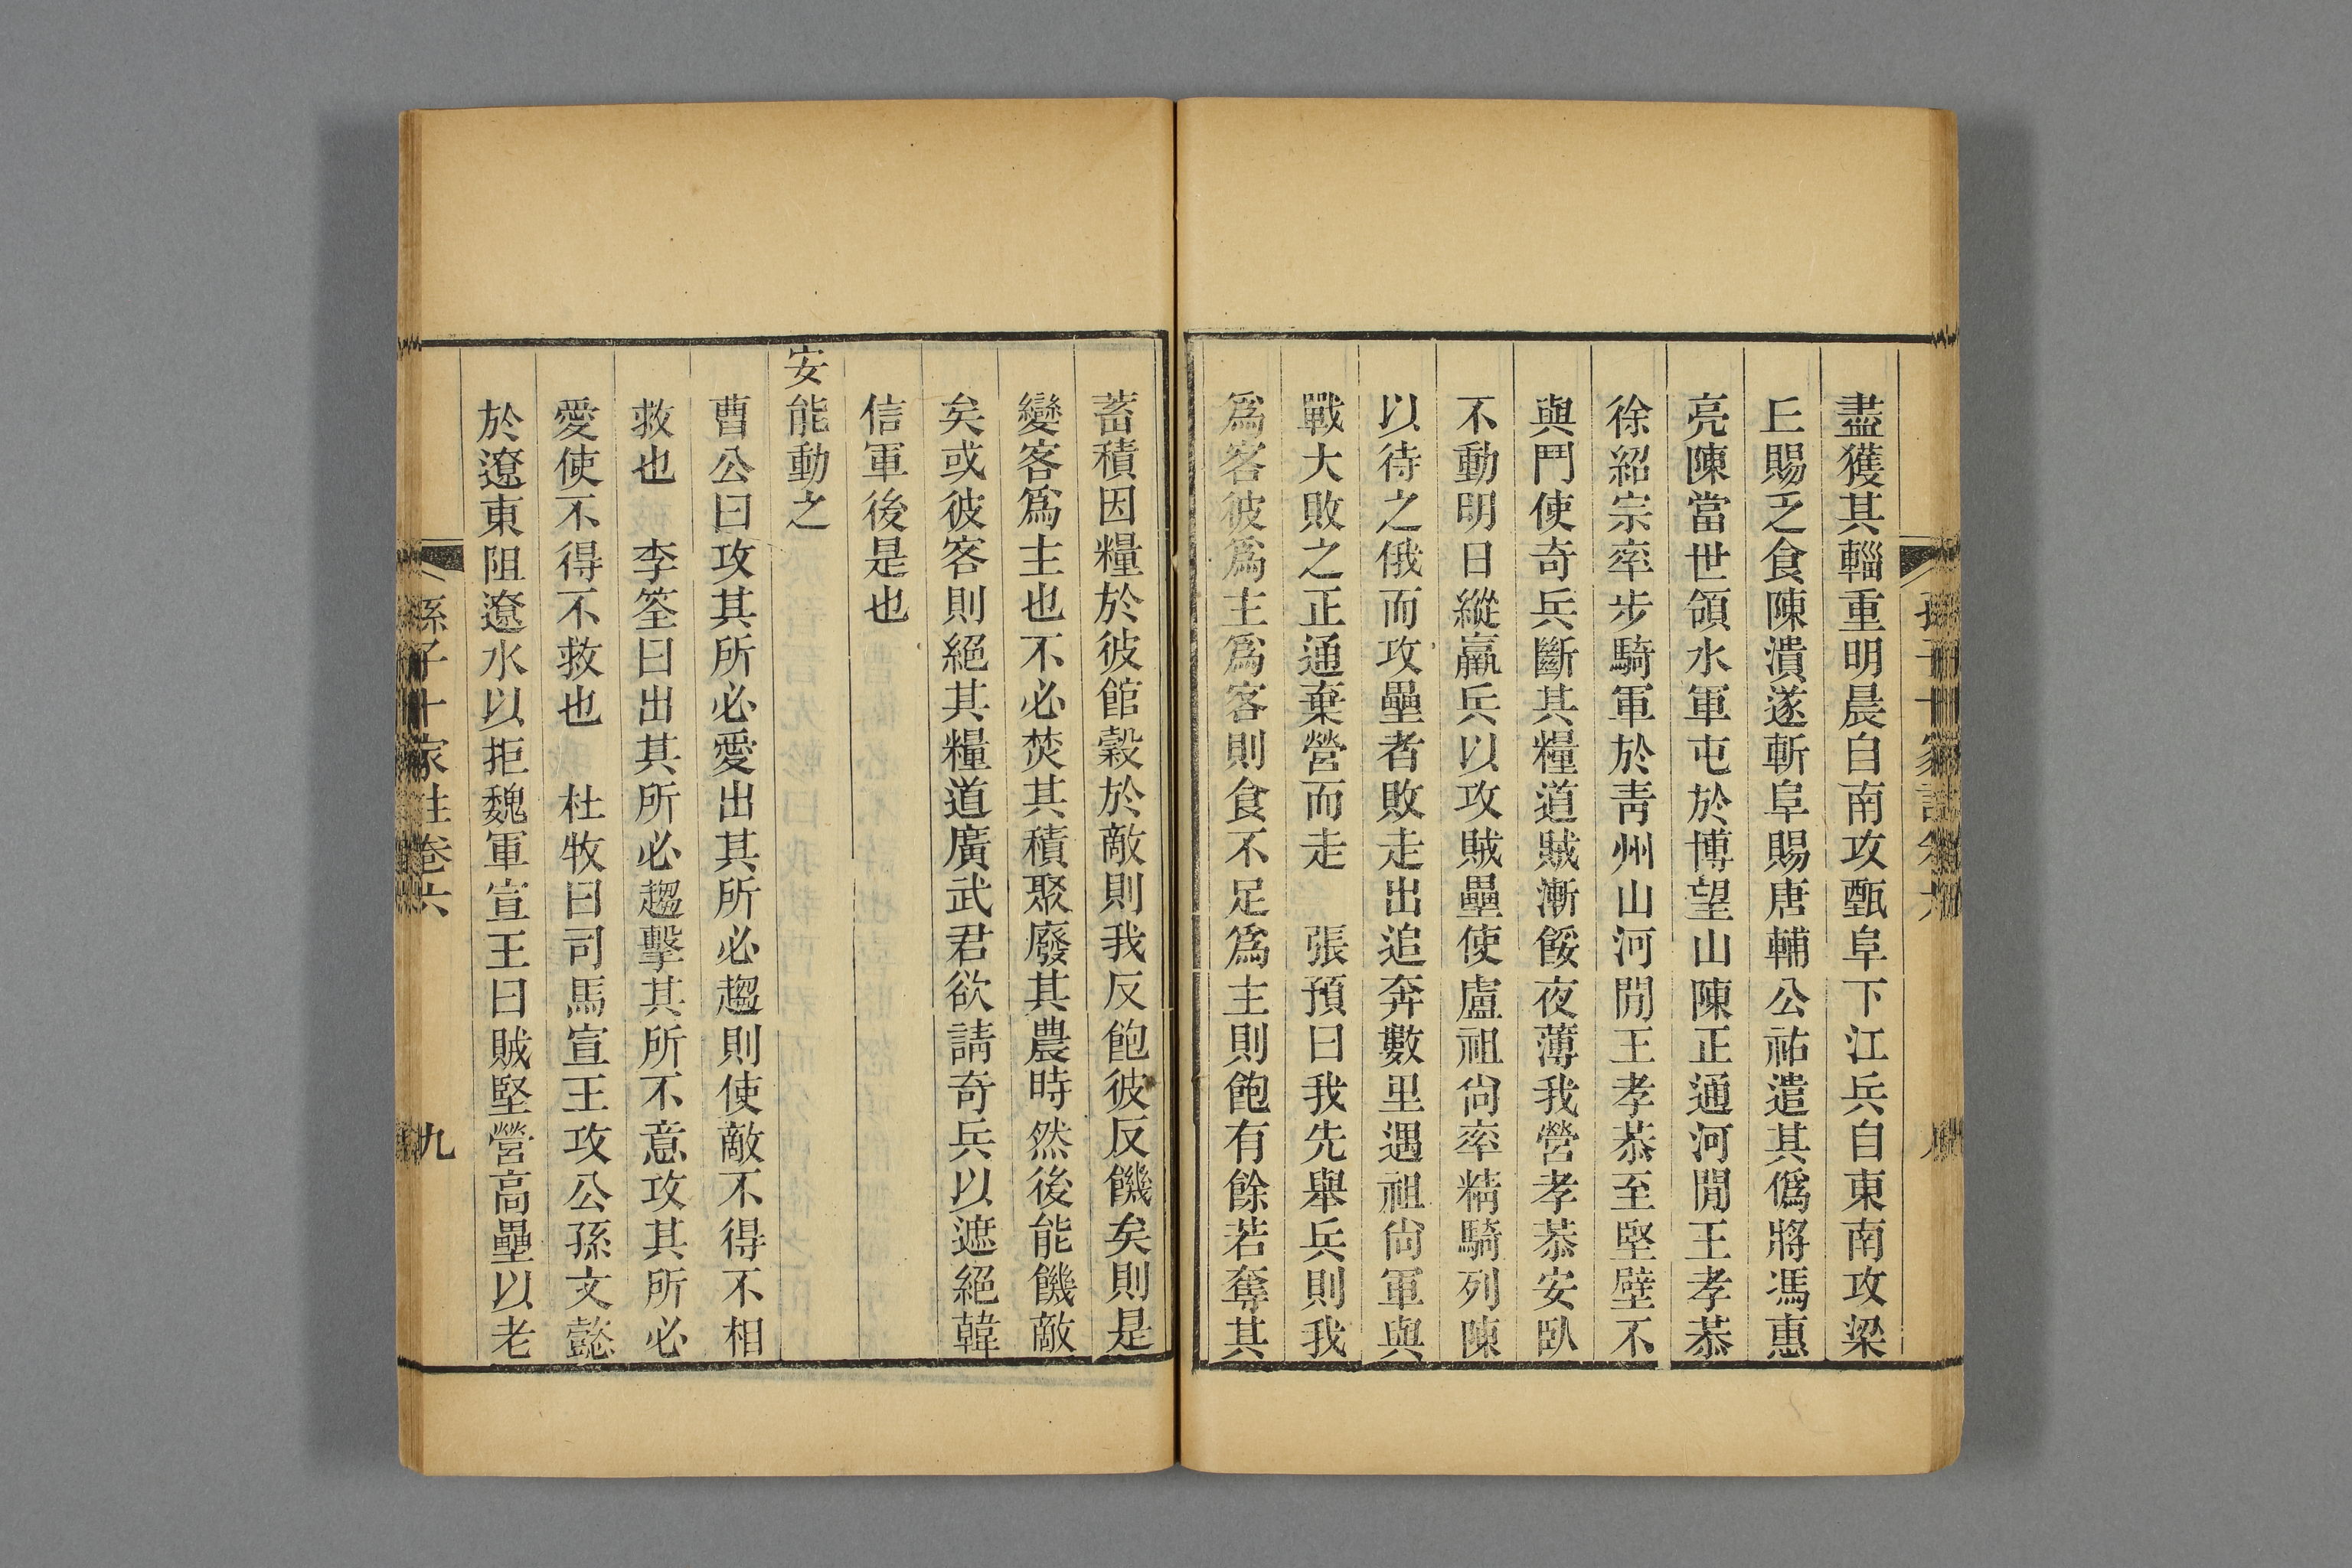 盡獲其輜重明晨自南攻甄阜下江兵自東南攻梁
丘賜乏食陳潰遂斬阜賜唐輔公祏遣其僞將馮惠
亮陳當世領水軍屯於博望山陳正通河閒王孝恭
徐紹宗率步騎軍於靑州山河閒王孝恭至堅壁不
與鬥使奇兵斷其糧道賊漸餒夜薄我營孝恭安臥
不動明日縱羸兵以攻賊壘使盧祖尙率精騎列陳
以待之俄而攻壘者敗走出追奔數里遇祖尙軍與
戰大敗之正通棄營而走　張預曰我先舉兵則我
爲客彼爲主爲客則食不足爲主則飽有餘若奪其
蓄積因糧於彼館穀於敵則我反飽彼反饑矣則是
變客爲主也不必焚其積聚廢其農時然後能饑敵
矣或彼客則絕其糧道廣武君欲請奇兵以遮絕韓
信軍後是也
安能動之
曹公曰攻其所必愛出其所必趨則使敵不得不相
救也　李筌曰出其所必趨擊其所不意攻其所必
愛使不得不救也　杜牧曰司馬宣王攻公孫文懿
於遼東阻遼水以拒魏軍宣王曰賊堅營高壘以老
孫子十家注卷六
九